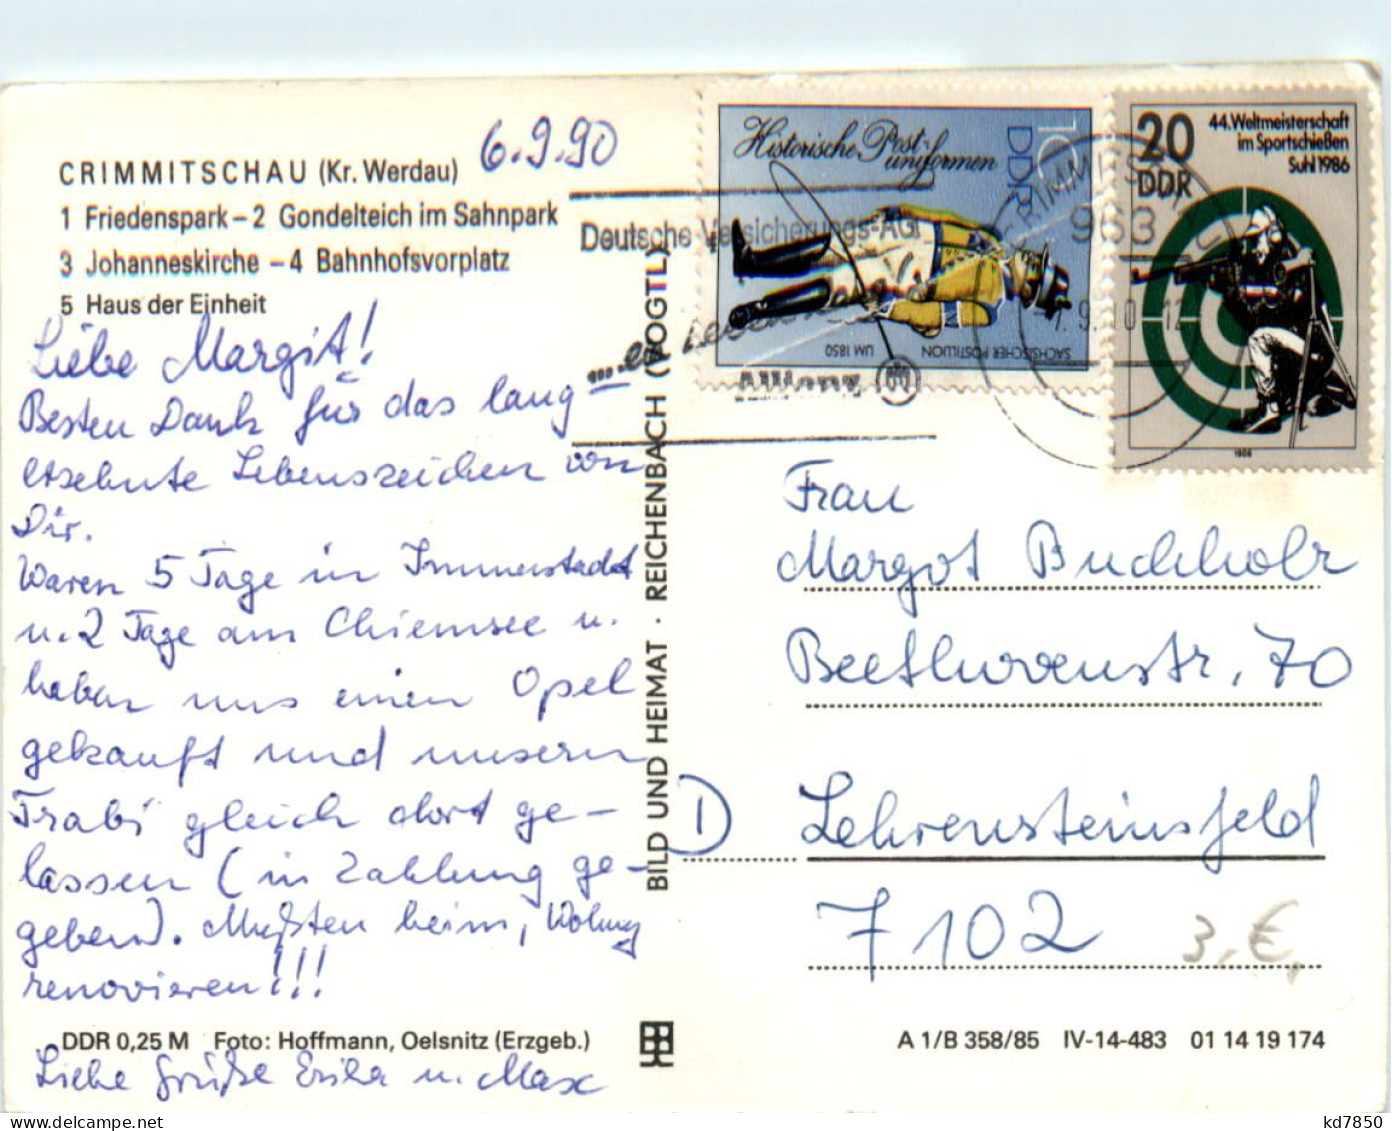 6.9.90
CRIMMITSCHAU (Kr. Werdau)
1 Friedenspark – 2 Gondelteich im Sahnpark
3 Johanneskirche – 4 Bahnhofsvorplatz
5 Haus der Einheit
Liebe Margit!
Besten Dank für das lang-
ersehnte Lebenszeichen von
Dir.
Waren 5 Tage in Immenstadt
u. 2 Tage am Chiemsee u.
haben uns einen Opel
gekauft und unsern
Trabi gleich dort ge-
lassen (in Zahlung ge-
geben). Mußten heim, Wohnung
renovieren!!!
DDR 0,25 M Foto: Hoffmann, Oelsnitz (Erzgeb.)
Liebe Grüße Erika u. Max
BILD UND HEIMAT · REICHENBACH (VOGTL)
Deutsche Versicherungs-AG
Historische Post-
uniformen
10
DDR
SÄCHSISCHER POSTILLION
UM 1850
963
20
DDR
44. Weltmeisterschaft
im Sportschießen
Suhl 1986
1986
Frau
Margot Buchholz
Beethovenstr. 70
D Lehrensteinsfeld
7102
3,€,
A 1/B 358/85 IV-14-483 01 14 19 174
kd7850